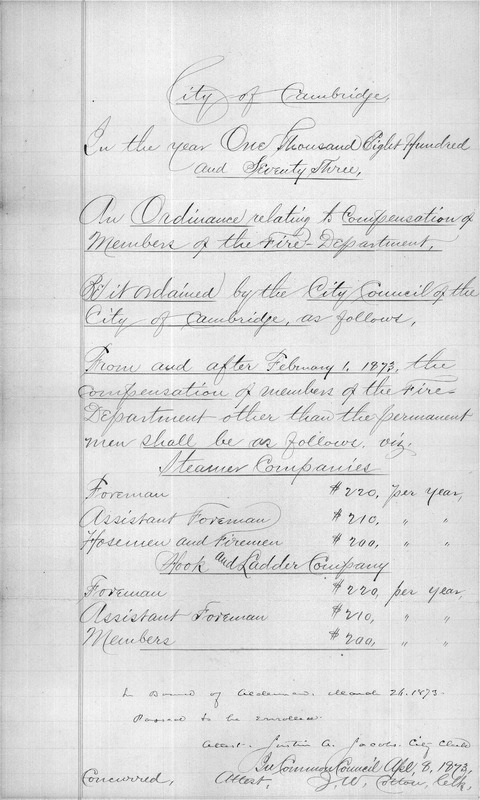 City of Cambridge,
In the year One Thousand Eight Hundred
and Seventy Three,
An Ordinance relating to Compensation of
Members of the Fire-Department,
Be it ordained by the City Council of the
City of Cambridge, as follows,
From and after February 1, 1873, the
compensation of members of the Fire-
Department other than the permanent
men shall be as follows, viz.
Steamer Companies
Foreman $220, per year,
Assistant Foreman $210, " "
Hosemen and Firemen $200, " "
Hook and Ladder Company
Foreman $220, per year,
Assistant Foreman $210, " "
Members $200, " "
In Board of Aldermen, March 26. 1873.
Passed to be enrolled.
Attest. Justin A. Jacobs. City Clerk
In Common Council Apl, 8, 1873,
Concurred, Attest, J. W. Cotton, Clk,